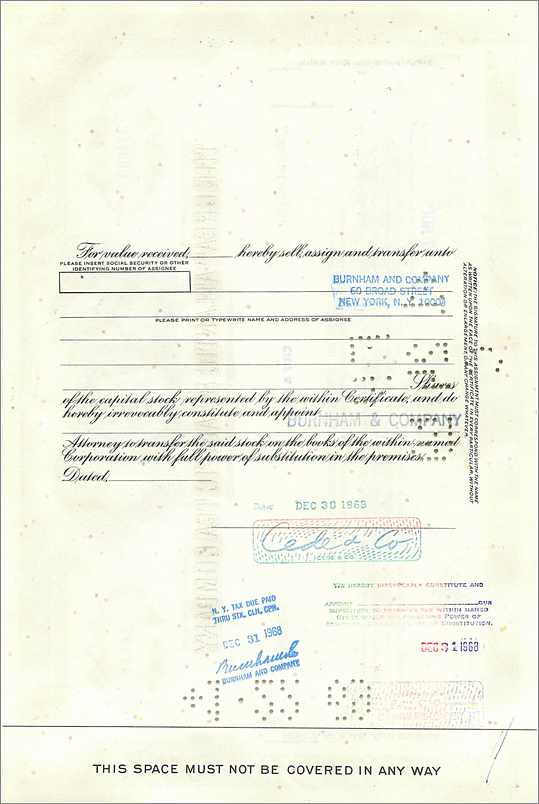 For value received, hereby sell, assign and transfer unto
PLEASE INSERT SOCIAL SECURITY OR OTHER
IDENTIFYING NUMBER OF ASSIGNEE
BURNHAM AND COMPANY
60 BROAD STREET
NEW YORK, N. Y. 10004
PLEASE PRINT OR TYPEWRITE NAME AND ADDRESS OF ASSIGNEE
Shares
of the capital stock represented by the within Certificate, and do
hereby irrevocably constitute and appoint
BURNHAM & COMPANY
Attorney to transfer the said stock on the books of the within-named
Corporation with full power of substitution in the premises.
Dated,
NOTICE: THE SIGNATURE TO THIS ASSIGNMENT MUST CORRESPOND WITH THE NAME
AS WRITTEN UPON THE FACE OF THE CERTIFICATE IN EVERY PARTICULAR, WITHOUT
ALTERATION OR ENLARGEMENT OR ANY CHANGE WHATEVER.
DATE DEC 30 1968
Cede & Co
CEDE & CO.
WE HEREBY IRREVOCABLY CONSTITUTE AND
APPOINT OUR
SUBSTITUTION.
N. Y. TAX DUE PAID
THRU STK. CLR. CPN.
DEC 31 1968
BURNHAM AND COMPANY
DEC 31 1968
THIS SPACE MUST NOT BE COVERED IN ANY WAY